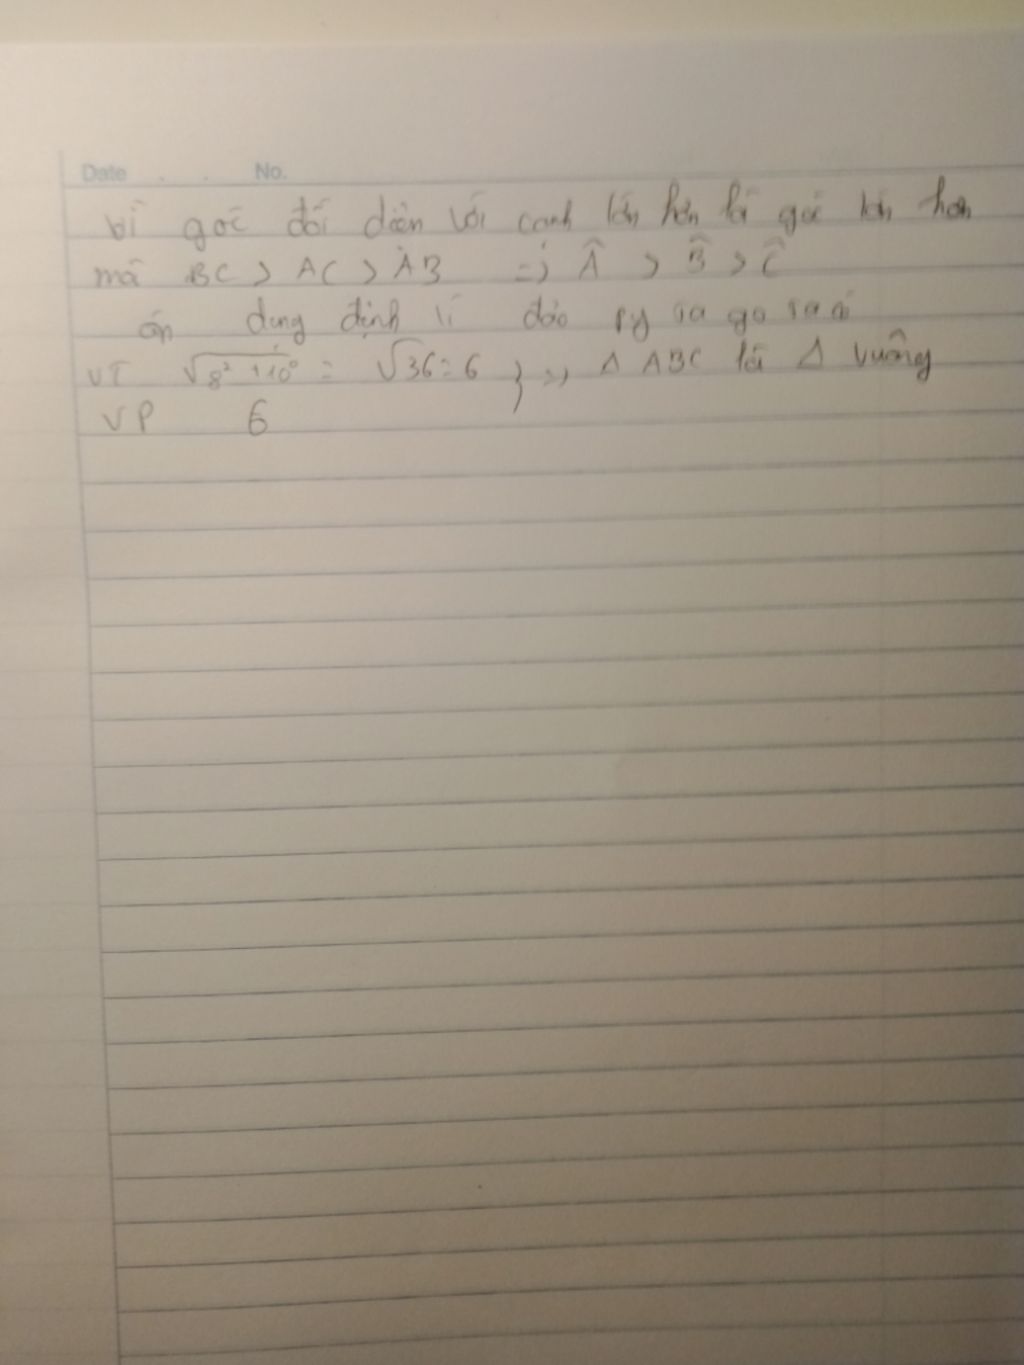 Date . . No.
vì góc đối diện với cạnh lớn hơn là góc lớn hơn
mà BC > AC > AB => Â > B̂ > Ĉ
áp dụng định lí đảo py ta go ta có
VT √8² +10² = √36 = 6 } => Δ ABC là Δ vuông
VP 6